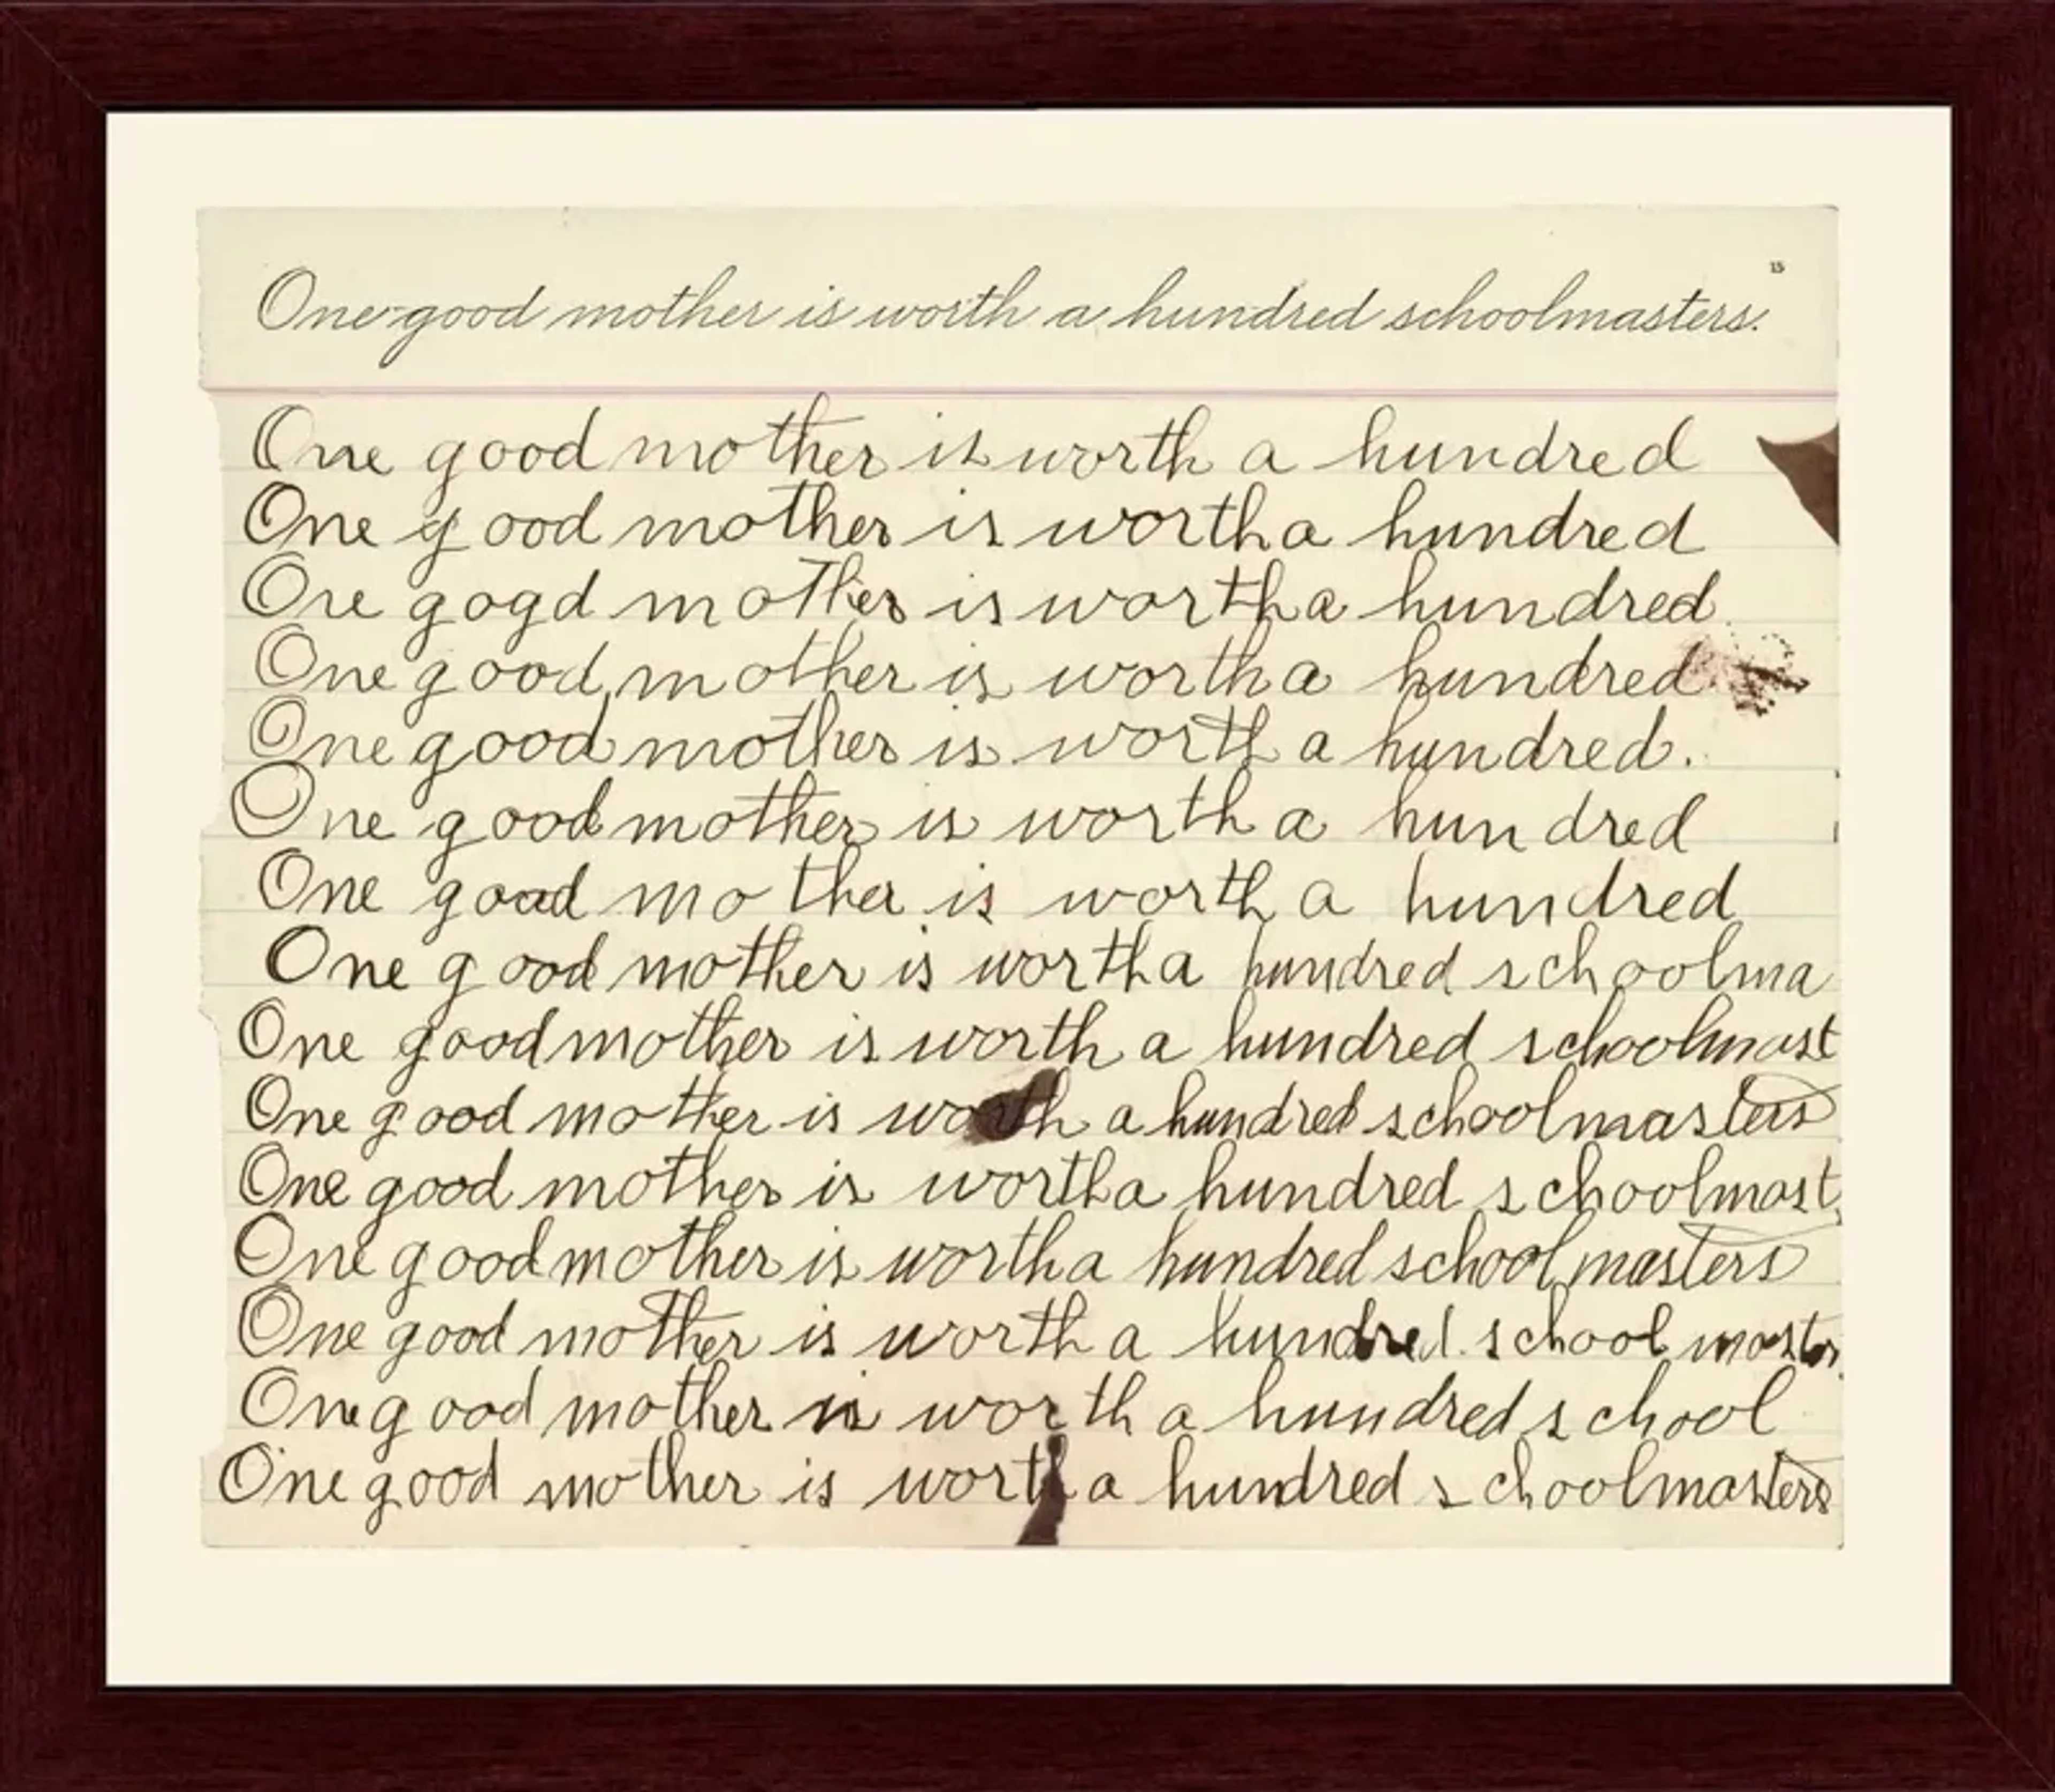 15
One good mother is worth a hundred schoolmasters.
One good mother is worth a hundred
One good mother is worth a hundred
One gogd mother is worth a hundred
One good mother is worth a hundred
One good mother is worth a hundred.
One good mother is worth a hundred
One good mother is worth a hundred
One good mother is worth a hundred schoolma
One good mother is worth a hundred schoolmast
One good mother is worth a hundred schoolmasters
One good mother is worth a hundred schoolmast
One good mother is worth a hundred schoolmasters
One good mother is worth a hundred school
One good mother is worth a hundred school
One good mother is worth a hundred schoolmasters